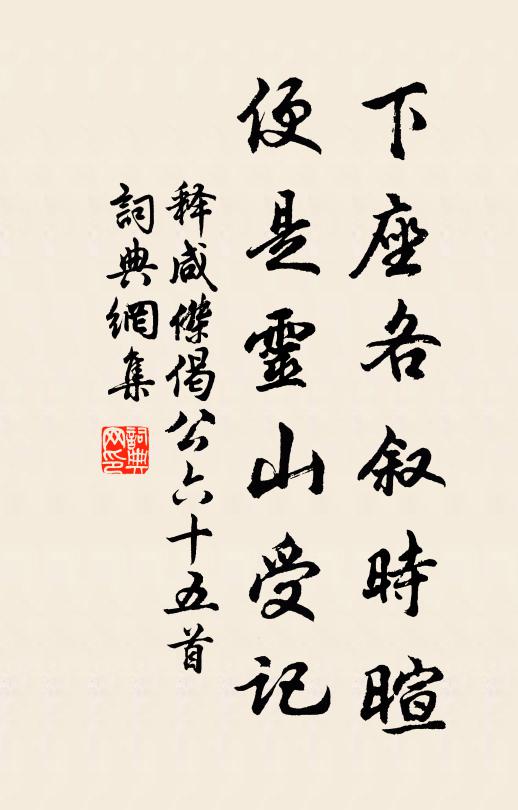 下座各叙時暄
便是靈山受記
释咸傑偈公六十五首
詞典網集
詞典网印